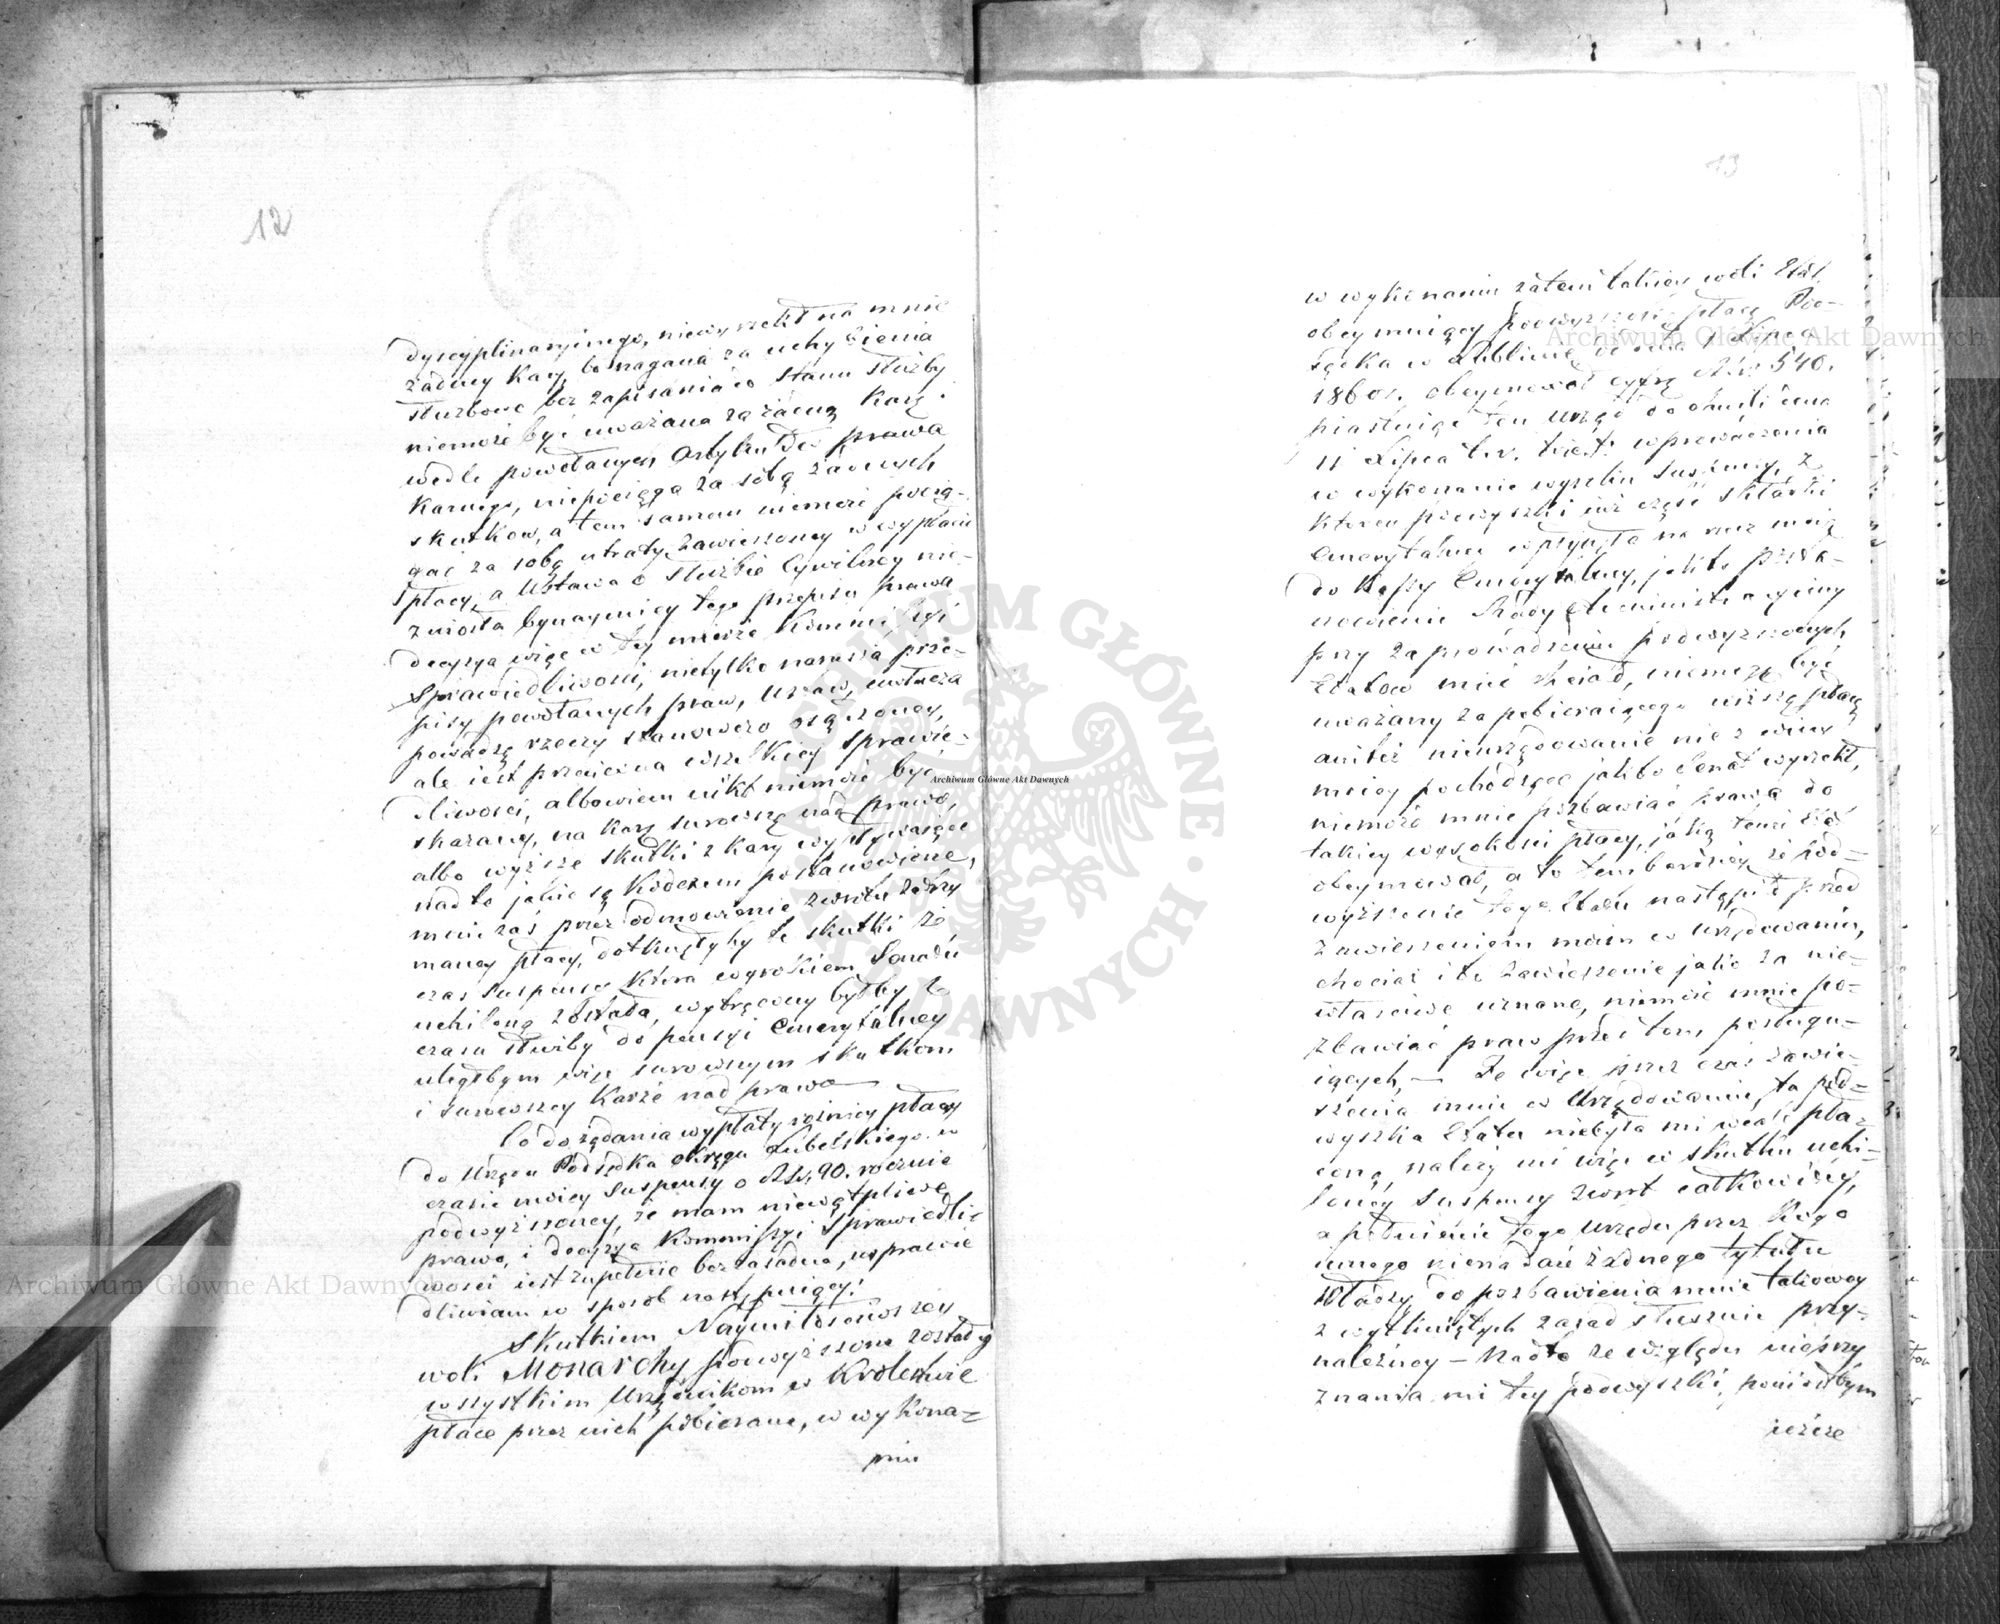 12
dyscyplinarnego, niewyrzekł na mnie
żadney Kary, bo nagana za uchybienia
służbowe bez zapisania w stanu służby
niemoże być uważana za żadną Karę.
wedle powołanych Artykułów prawa
Karnego, niepociąga za sobą żadnych
skutków, a tem samem niemoże pocią-
gać za sobą utraty zawieszoney w wypłacie
płacy, a Ustawa o służbie Cywilney nie-
zniosła bynaymniey tego przepisu prawa
decyzya więc w tey mierze Kommissyi
Sprawiedliwości, nietylko narusza prze-
pisy powołanych praw, uwłacza
powadze rzeczy stanowczo osądzoney,
ale iest przeciwna wszelkiey sprawie-
dliwości, albowiem nikt niemoże być
skazany, na karę surowszą nad prawo,
albo wyższe skutki z kary wypływaiące
nad to jakie są Kodexem postanowione,
mnie zaś przez odmowienie zwrotu zatrzy
maney płacy, dotknęłyby te skutki że
czas suspensy która wyrokiem Senatu
uchiloną została, wytrącony byłby z
czasu służby do pensyi Emerytalney
uległbym więc surowszym skutkom
i surowszey Karze nad prawo
Co do żądania wypłaty różnicy płacy
do Urzędu Podsędka okręgu Lubelskiego w
czasie moiey suspensy o Rs. 90. rocznie
podwyższoney, że mam niewątpliwe
prawo, i decyzya Kommissyi Sprawiedli
wości iest zupełnie bezzasadna, usprawie
dliwiam w sposób następuiący:
Skutkiem Naymiłościwszey
woli Monarchy podwyższone zostały
wszystkim Urzędnikom w Królestwie
płace przez nich pobierane, w wykona-
niu
13
w wykonaniu zatem takiey woli Etat
obeymuiący podwyższoną płacę Pod-
sędka w Lublinie od dnia 1 Lipca
1860r. obeymował cyfrę Rs. 540.
piastuiąc ten Urząd do chwili dnia
11 Lipca t. r. wprowadzenia
w wykonanie wyroku suspensy, z
którey przewyżki iuż część składki
Emerytalney wpłynęła na rzecz moią
do Kassy Emerytalney, jakto posta-
nowienie Rady Administracyiney
przy zaprowadzeniu podwyższonych,
Etatów mieć chciało, niemogę być
uważany za pobieraiącego niższą płacę
anitéż nieurzędowanie nie z winy
moiey pochodzące jakto Senat wyrzekł,
niemoże mnie pozbawiać prawa do
takiey wysokości płacy, jaką tenże Etat
obeymował, a to tembardziey że pod-
wyższenie tego Etatu nastąpiło przed
zawieszeniem moim w Urzędowaniu,
chociaż i to zawieszenie jako za nie-
właściwe uznane, niemoże mnie po-
zbawiać praw przed tem posługu-
iących, — Że więc przez czas zawie-
szenia mnie w Urzędowaniu, ta pod-
wyżka Etatu niebyła mi wcale pła-
coną, należy mi więc w skutku uchi-
loney suspensy zwrot całkowitey,
a pełnienie tego Urzędu przez Kogo
innego nienadaie żadnego tytułu
Władzy do pozbawienia mnie takowey
z wytkniętych zasad słusznie przy-
należney — Nadto ze względu nieprzy
znania mi tey podwyżki, poniósłbym
ieszcze